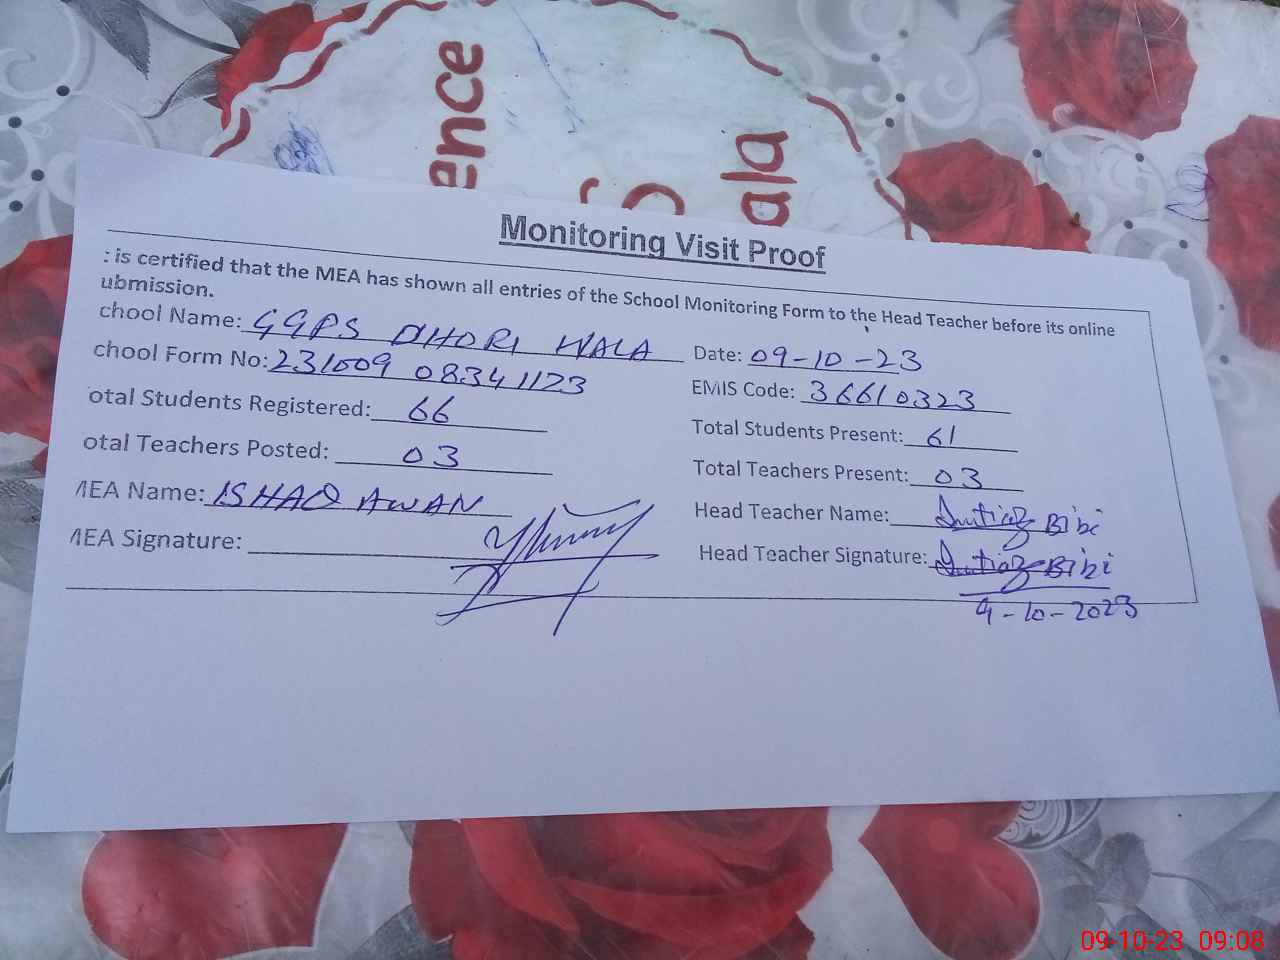 ence
ala
Monitoring Visit Proof
: is certified that the MEA has shown all entries of the School Monitoring Form to the Head Teacher before its online
ubmission.
chool Name: GGPS DHORI WALA Date: 09-10-23
chool Form No: 231009 08341123 EMIS Code: 36610323
otal Students Registered: 66 Total Students Present: 61
otal Teachers Posted: 03 Total Teachers Present: 03
MEA Name: ISHAQ AWAN Head Teacher Name: Imtiaz Bibi
MEA Signature: Head Teacher Signature: Imtiaz Bibi
9-10-2023
09-10-23 09:08